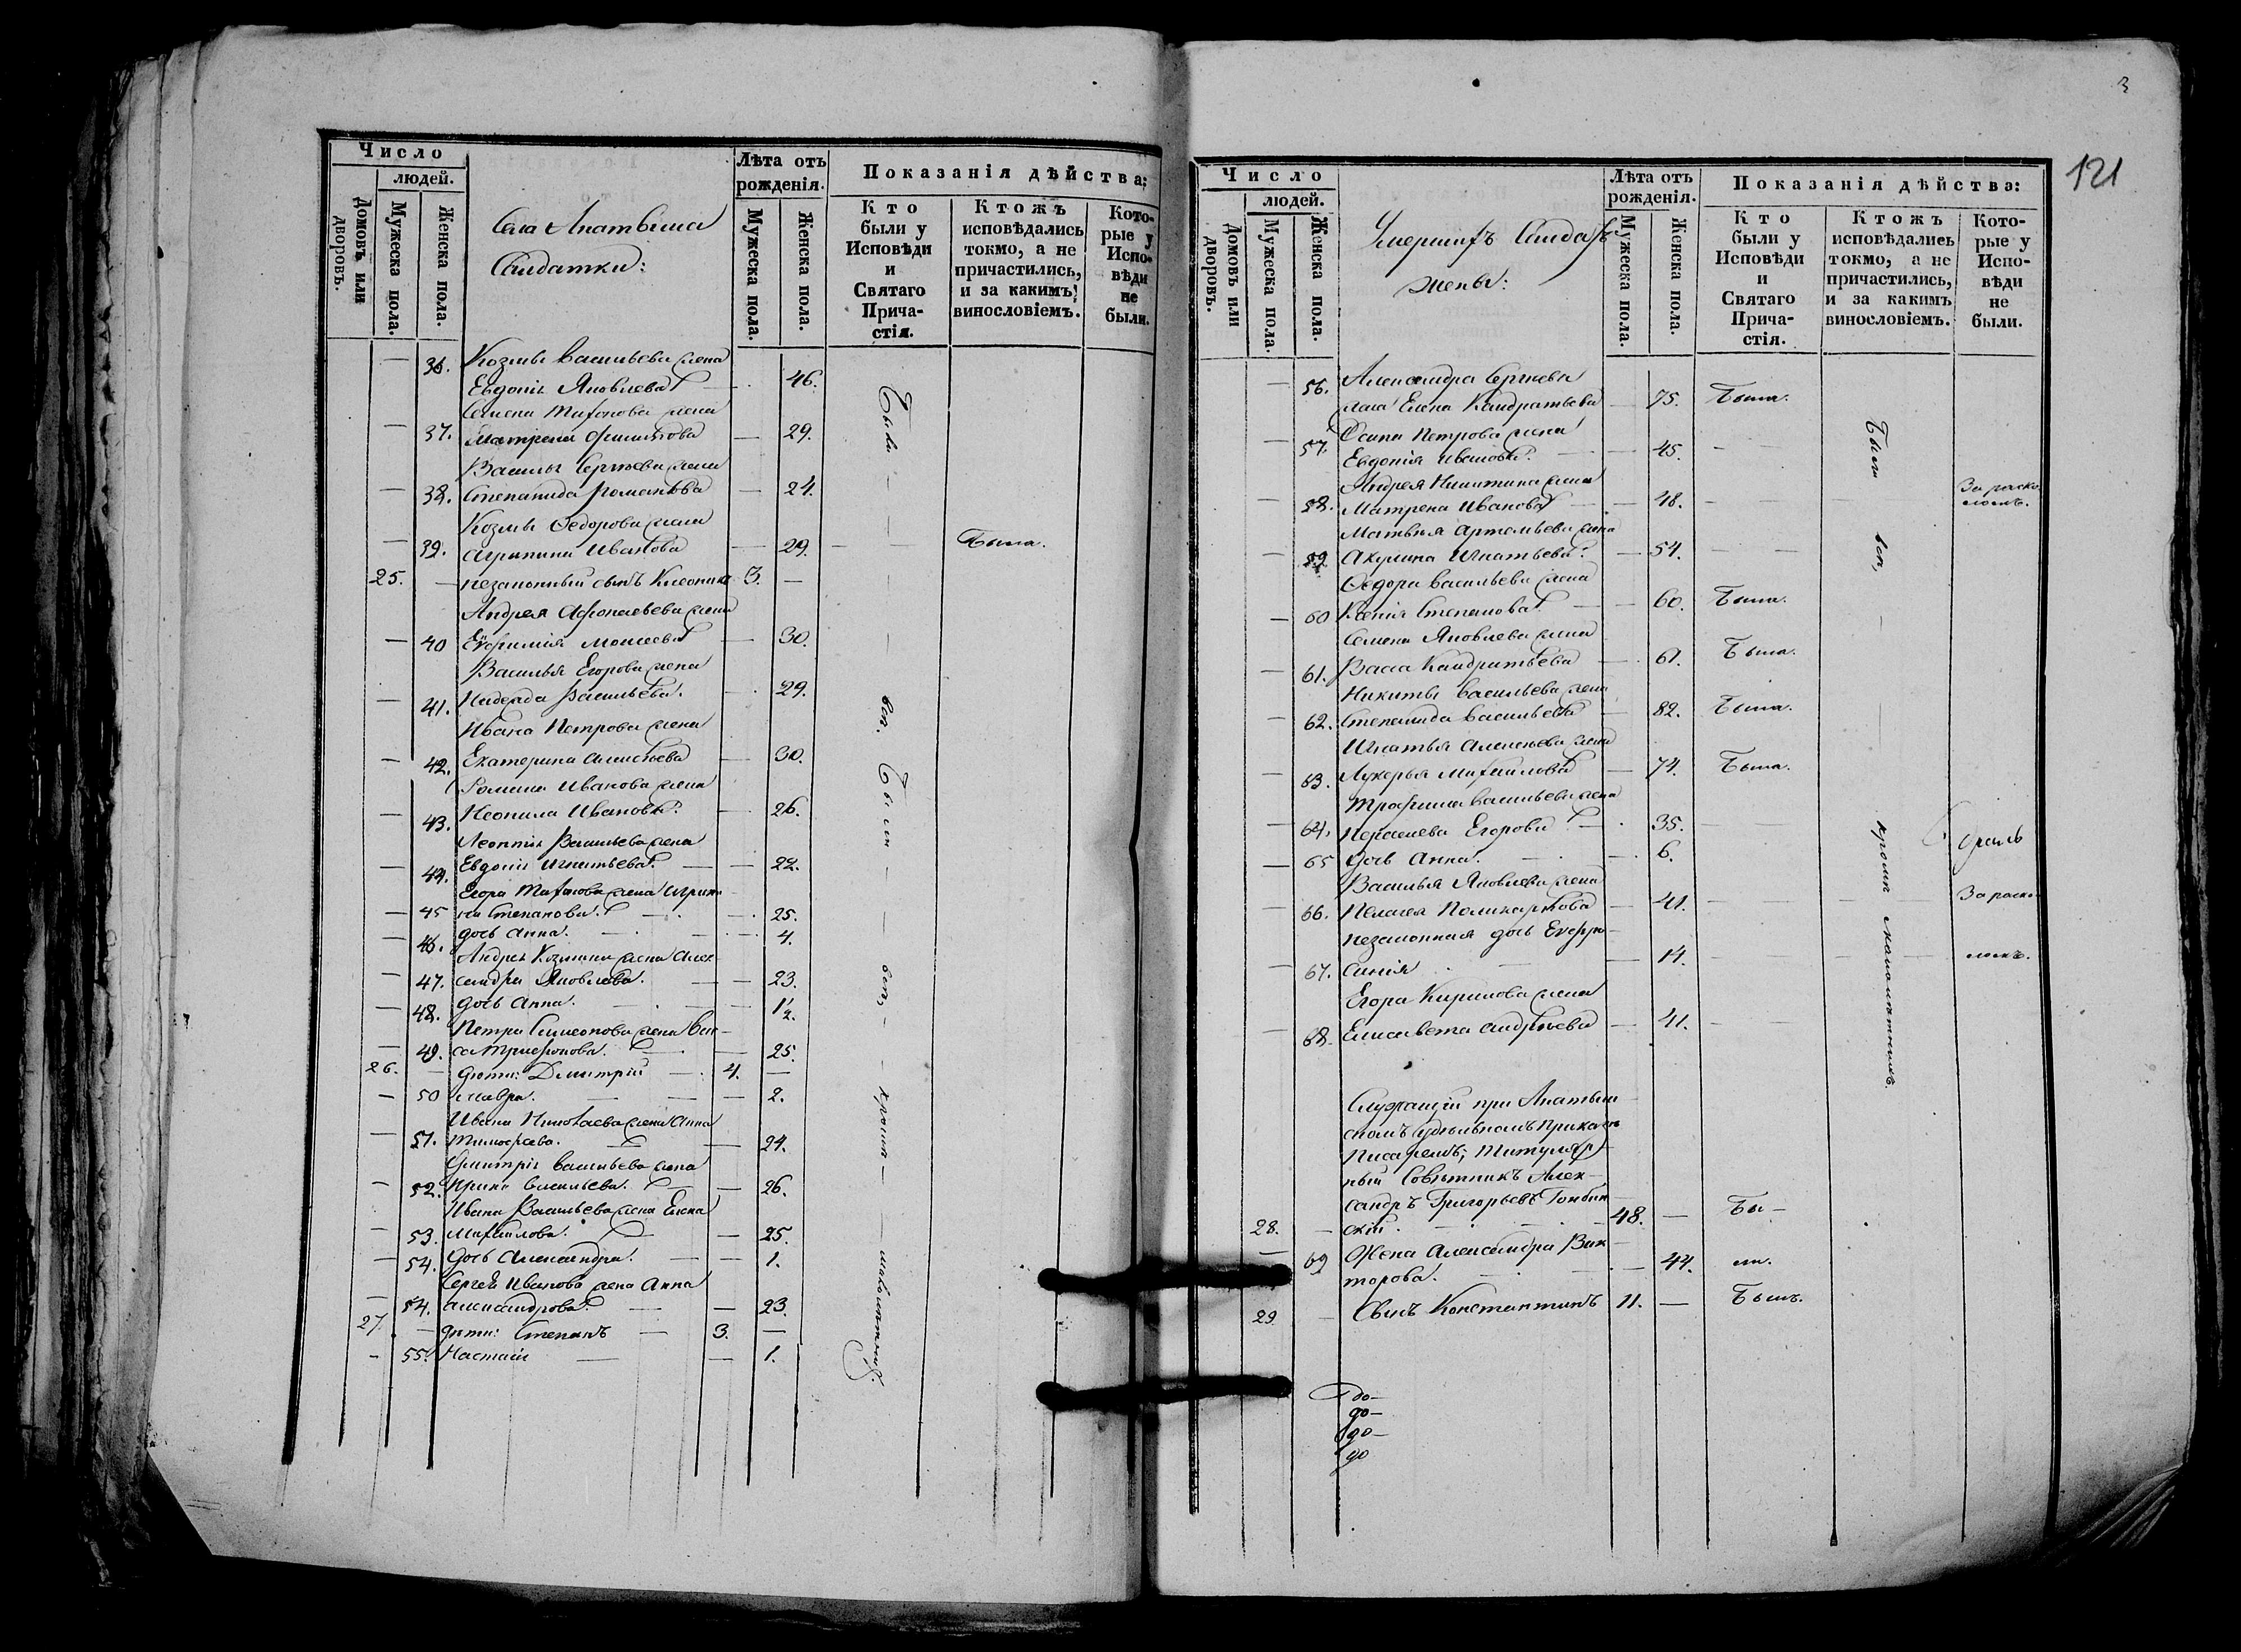 Число
людей.
Домовъ или дворовъ.
Мужеска пола.
Женска пола.
Села Апатьина
Солдатки:
Лѣта отъ рожденія.
Мужеска пола.
Женска пола.
Показанія дѣйства:
Кто были у Исповѣди и Святаго Прича-стія.
Ктожъ исповѣдались токмо, а не причастились, и за какимъ винословіемъ.
Кото-рые у Испо-вѣди не были.
— 36. Козмы Васильева жена
Евдокія Яковлева — 46.
Семена Тихонова жена
— 37. Матрена — 29.
Василья Сергѣева жена
— 38. Степанида Романова — 24.
Козмы Ѳедорова жена
— 39. Агрипина Иванова — 29. — — Была.
25. — незаконный сынъ 3. —
Андрея Афонасьева жена
— 40 Евфимія Моисеева — 30.
Василья Егорова жена
— 41. Надежда Васильева. — 29.
Ивана Петрова жена
— 42. Екатерина Алексѣева — 30.
Романа Иванова жена
— 43. Неонила Иванова. — 26.
Леонтія Васильева жена
— 44. Евдокія Игнатьева. — 22.
Егора Тихонова жена Ирин-
— 45 на Степанова. — 25.
— 46. дочь Анна. — 4.
Андрея Козмина жена Алек-
— 47. сандра Яковлева. — 23.
— 48. дочь Анна. — 1½.
Петра Симеонова жена Вас-
— 49. са Трифонова. — 25.
26. — дѣти: Димитрій — 4. —
— 50 Мавра. — 2.
Ивана Николаева жена Анна
— 51. Тимофеева. — 24.
Димитрія Васильева жена
— 52. Ирина Васильева. — 26.
Ивана Васильева жена Елена
— 53. Михайлова. — 25.
— 54. дочь Александра. — 1.
Сергея Иванова жена Анна
— 54. Александрова. — 23.
27. — дѣти: Степанъ — 3. —
— 55. Настасія — 1.
Были — всѣ. Были — всѣ, — кромѣ — малолѣтнихъ.
3
121
Число
людей.
Домовъ или дворовъ.
Мужеска пола.
Женска пола.
Умершихъ Солдатъ
жены:
Лѣта отъ рожденія.
Мужеска пола.
Женска пола.
Показанія дѣйства:
Кто были у Исповѣди и Святаго Прича-стія.
Ктожъ исповѣдались токмо, а не причастились, и за какимъ винословіемъ.
Кото-рые у Испо-вѣди не были.
— 56. Александра Сергѣева
жена Елена Кондратьева — 75. Была.
Осипа Петрова жена
— 57. Евдокія Иванова. — 45. —
Андрея Никитина жена
— 58. Матрена Иванова — 48. — — За раско-ломъ.
Матвѣя Артемьева жена
— 59. Акулина Игнатьева. — 54. — —
Ѳедора Васильева жена
— 60 Ксенія Степанова. — 60. Была.
Семена Яковлева жена
— 61. Васса Кондратьева — 61. Была.
Никиты Васильева жена
— 62. Степанида Васильева — 82. Была.
Игнатья Алексѣева жена
— 63. Лукерья Михайлова — 74. Была.
Трофима Васильева жена
— 64. Парасковья Егорова — 35. —
— 65 дочь Анна. — 6.
Василья Яковлева жена
— 66. Пелагея Поликарпова — 41. — — За раско-
незаконная дочь Евфро-
— 67. синія — 14. — — ломъ.
Егора Кирилова жена
— 68. Елисавета Андрѣева — 41. —
Были всѣ, — кромѣ малолѣтнихъ.
Служащій при Апатьин-
скомъ Удѣльномъ Приказѣ
Писаремъ; Титуляр-
ный Совѣтникъ Алек-
сандръ Григорьевъ
28. — скій. — 48. — Бы-
— 69 Жена Александра Вик-
торова. — 44. ли.
29 — Сынъ Константинъ 11. — Былъ.
до-
до-
до-
до